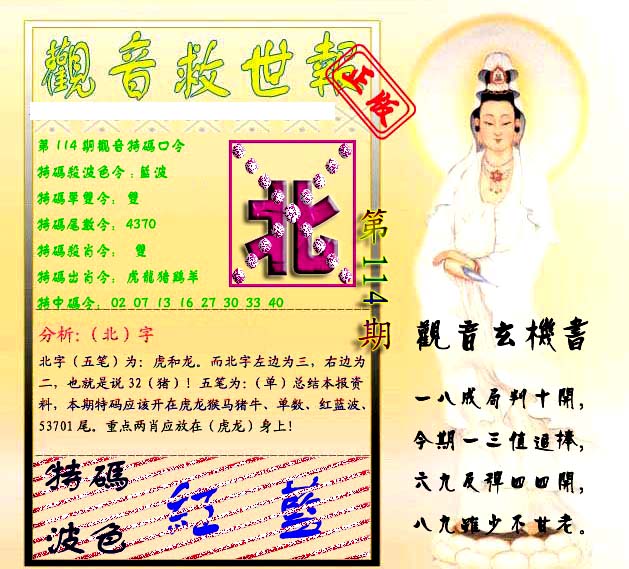 觀音救世報
正版
第114期觀音特碼口令
特碼殺波色令:藍波
特碼單雙令: 雙
特碼尾數令: 4370
特碼殺肖令: 雙
特碼出肖令: 虎龍猪鷄羊
特中碼令: 02 07 13 16 27 30 33 40
北
第114期
分析:(北)字
北字(五笔)为:虎和龙。而北字左边为三,右边为
二,也就是说32(猪)!五笔为:(单)总结本报资
料,本期特码应该开在虎龙猴马猪牛、单数、红蓝波、
53701尾。重点两肖应放在(虎龙)身上!
特碼
波色
紅 藍
觀音玄機書
一八成局判十開,
今期一三值追捧,
六九反彈四四開,
八九雖少不甘老。